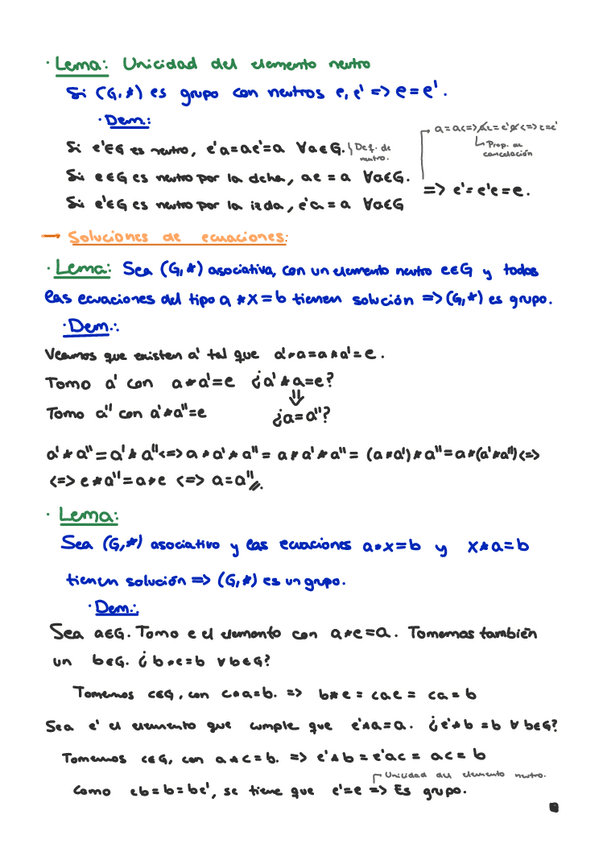 · Lema: Unicidad del elemento neutro
Si (G,*) es grupo con neutros e, e' => e = e'.
· Dem:
Si e'∈G es neutro, e'a=ae'=a ∀a∈G. } Def. de neutro.
a=a<=> e=e'
Prop. de cancelación
Si e∈G es neutro por la dcha, ae = a ∀a∈G.
=> e'=e'e=e.
Si e'∈G es neutro por la izda, e'a = a ∀a∈G
→ Soluciones de ecuaciones:
· Lema: Sea (G,*) asociativa, con un elemento neutro e∈G y todas
las ecuaciones del tipo a*x=b tienen solución => (G,*) es grupo.
· Dem.:
Veamos que existen a' tal que a'*a=a*a'=e.
Tomo a' con a*a'=e ¿a'*a=e?
⇓
Tomo a'' con a'*a''=e ¿a=a''?
a'*a''=a'*a''<=>a*a'*a''= a*a'*a''= (a*a')*a''=a*(a'*a'')<=>
<=> e*a''=a*e <=> a=a''.
· Lema:
Sea (G,*) asociativo y las ecuaciones a*x=b y x*a=b
tienen solución => (G,*) es un grupo.
· Dem.:
Sea a∈G. Tomo e el elemento con a*e=a. Tomemos también
un b∈G. ¿b*e=b ∀b∈G?
Tomemos c∈G, con c*a=b. => b*e = cae = ca = b
Sea e' el elemento que cumple que e'*a=a. ¿e'*b=b ∀b∈G?
Tomemos c∈G, con a*c=b. => e'*b = e'ac = ac = b
Unicidad del elemento neutro.
Como eb=b=be', se tiene que e'=e => Es grupo.